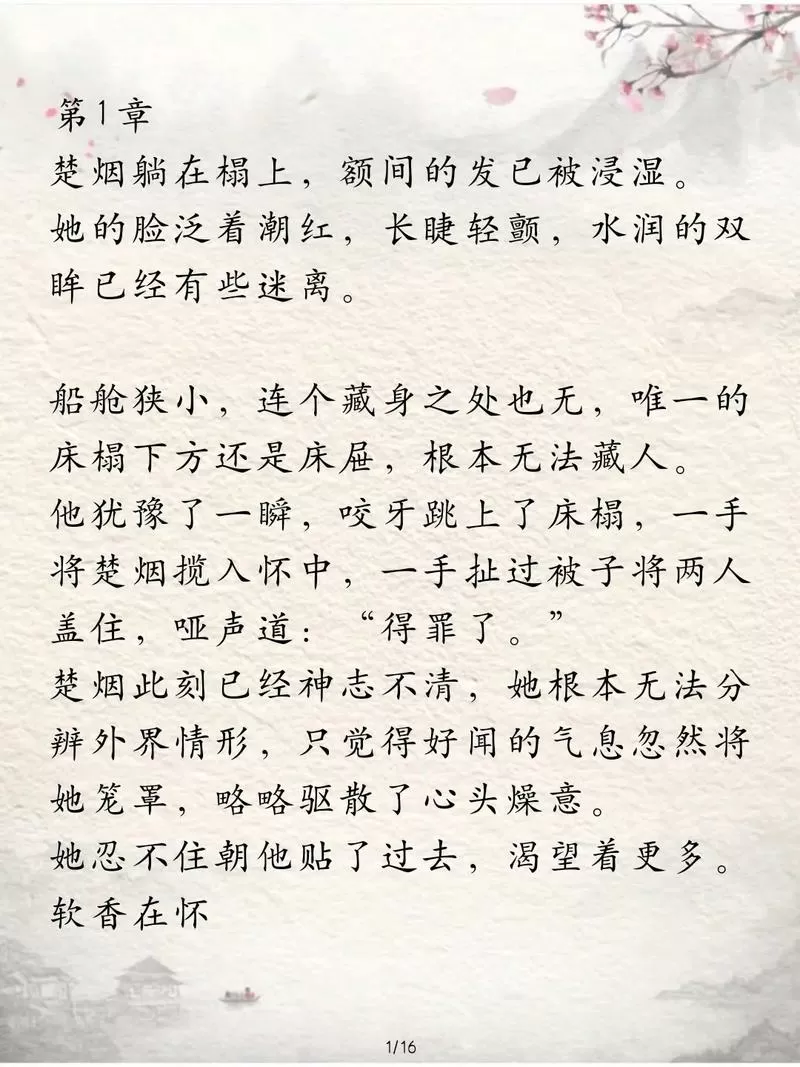 第1章
楚烟躺在榻上，额间的发已被浸湿。
她的脸泛着潮红，长睫轻颤，水润的双
眸已经有些迷离。
船舱狭小，连个藏身之处也无，唯一的
床榻下方还是床屉，根本无法藏人。
他犹豫了一瞬，咬牙跳上了床榻，一手
将楚烟揽入怀中，一手扯过被子将两人
盖住，哑声道：“得罪了。”
楚烟此刻已经神志不清，她根本无法分
辨外界情形，只觉得好闻的气息忽然将
她笼罩，略略驱散了心头燥意。
她忍不住朝他贴了过去，渴望着更多。
软香在怀
1/16